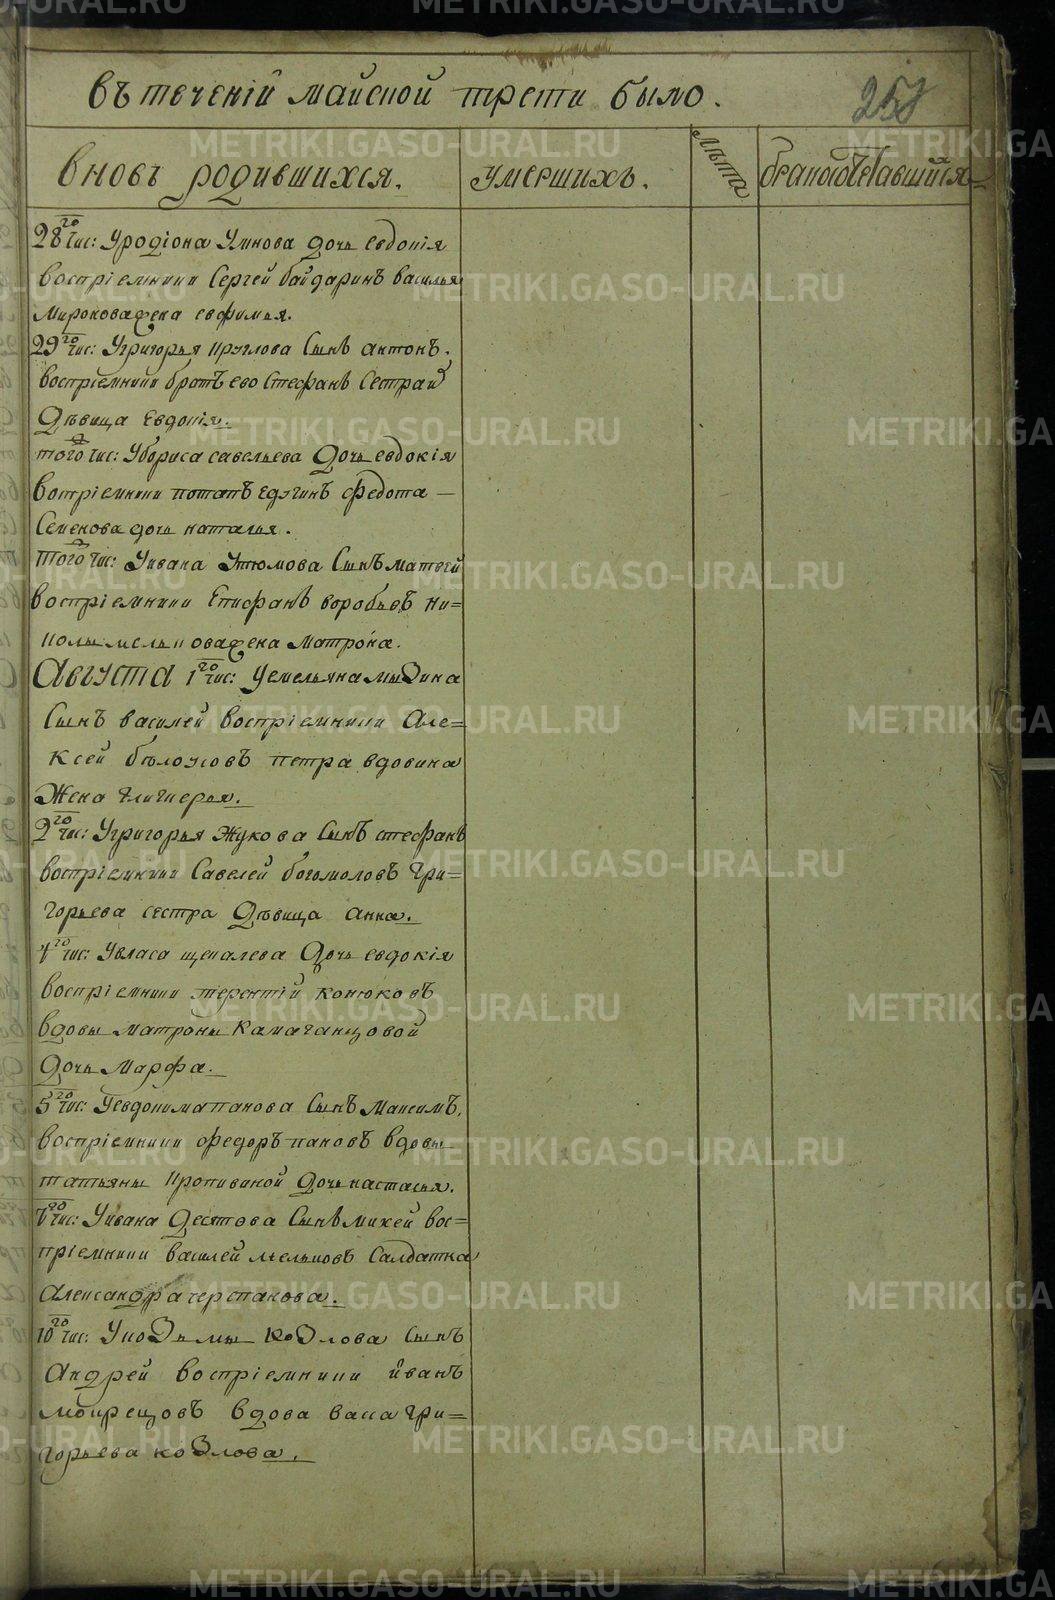 въ теченіи майской трети было.
258
вновь родившихся.
умершихъ.
лѣта
бракосочетавшихся
28го чис: У родіона Умнова дочь евдокія
воспріемники Сергей байдаринъ василья
Миронова жена евфимья.
29го чис: У григорья круглова Сынъ антонъ.
воспріемники братъ ево Стефанъ Сестра и
дѣвица Евдокія.
того чис: У бориса савельева дочь евдокія
вотріемники потапъ федота
Семенова дочь наталья.
того чис: У ивана Утюмова Сынъ матвей
воспріемники Епифанъ воробьевъ ни=
колы мельникова жена матрона.
Августа 1го чис: У емельяна мызина
Сынъ василей воспріемники Але=
ксей бѣлоусовъ петра вдовина
Жена гликерья.
2го чис: У григорья Жукова Сынъ стефанъ
воспріемники Савелей богомоловъ гри=
горьева сестра дѣвица анна.
4го чис: У власа щепалева дочь евдокія
воспріемники терентій конюковъ
вдовы матроны Камаганцовой
дочь марфа.
5го чис: У евдокима панова Сынъ Максимъ,
воспріемники федоръ пановъ вдовы
татьяны кропивиной дочь настасья.
7го чис: У ивана десятова Сынъ михей вос=
пріемники василей мельковъ Салдатка
александра черепанова.
10го чис: У козьмы козлова сынъ
Андрей воспріемники иванъ
мокрецовъ вдова васса гри=
горьева козлова.
METRIKI.GASO-URAL.RU